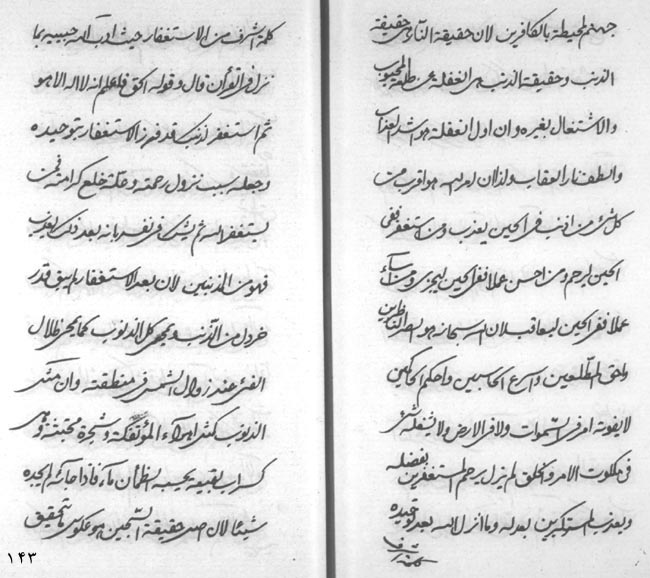 جهنم لمحيطة بالكافرين لان حقيقة النار هى حقيقة
الذنب وحقيقة الذنب هى الغفلة عن طلعة المحبوب
والاشتغال بغيره وان اول الغفلة هو اشد العذاب
والطف نار العقاب ولذا ان الله هو اقرب من
كل شئ من اذنب فى الحين يعذب ومن استغفر ففى
الحين ليرحم ومن احسن عملا ففى الحين ليجزى ومن اساء
عملا ففى الحين ليعاقب لان الله سبحانه هو ابصر الناظرين
واحق المطلعين واسرع الحاسبين واحكم الحاكمين
لا يفوته امر فى السموات ولا فى الارض ولا يشغله شئ
فى ملكوت الامر والخلق لم يزل يرحم المستغفرين بفضله
ويعذب المستكبرين بعدله وما انزل الله بعد توحيده
كلمة اشرف
كلمة اشرف من الاستغفار حيث ادب الله حبيبه بما
نزل فى القرآن قال وقوله الحق فاعلم انه لا اله الا هو
ثم استغفر لذنبك وقد قرن الاستغفار بتوحيده
وجعله سبب نزول رحمته وعلة خلع كرامته فمن
يستغفر الله ثم يشك فى نفسه بانه بعد ذلك يعذب
فهو من المذنبين لان بعد الاستغفار لم يبق قدر
خردل من الذنب ويمحى كل الذنوب كما يمحى ظلال
الفئ عند زوال الشمس فى منطقته وان مثل
الذنوب كمثل اهواء المؤتفكة وشجرة مجتثة وهى
كسراب بقيعة يحسبه الظمان ماء فاذا جائه لم يجده
شيئا لان اصل حقيقة السجين هو عكوس
١٤٣